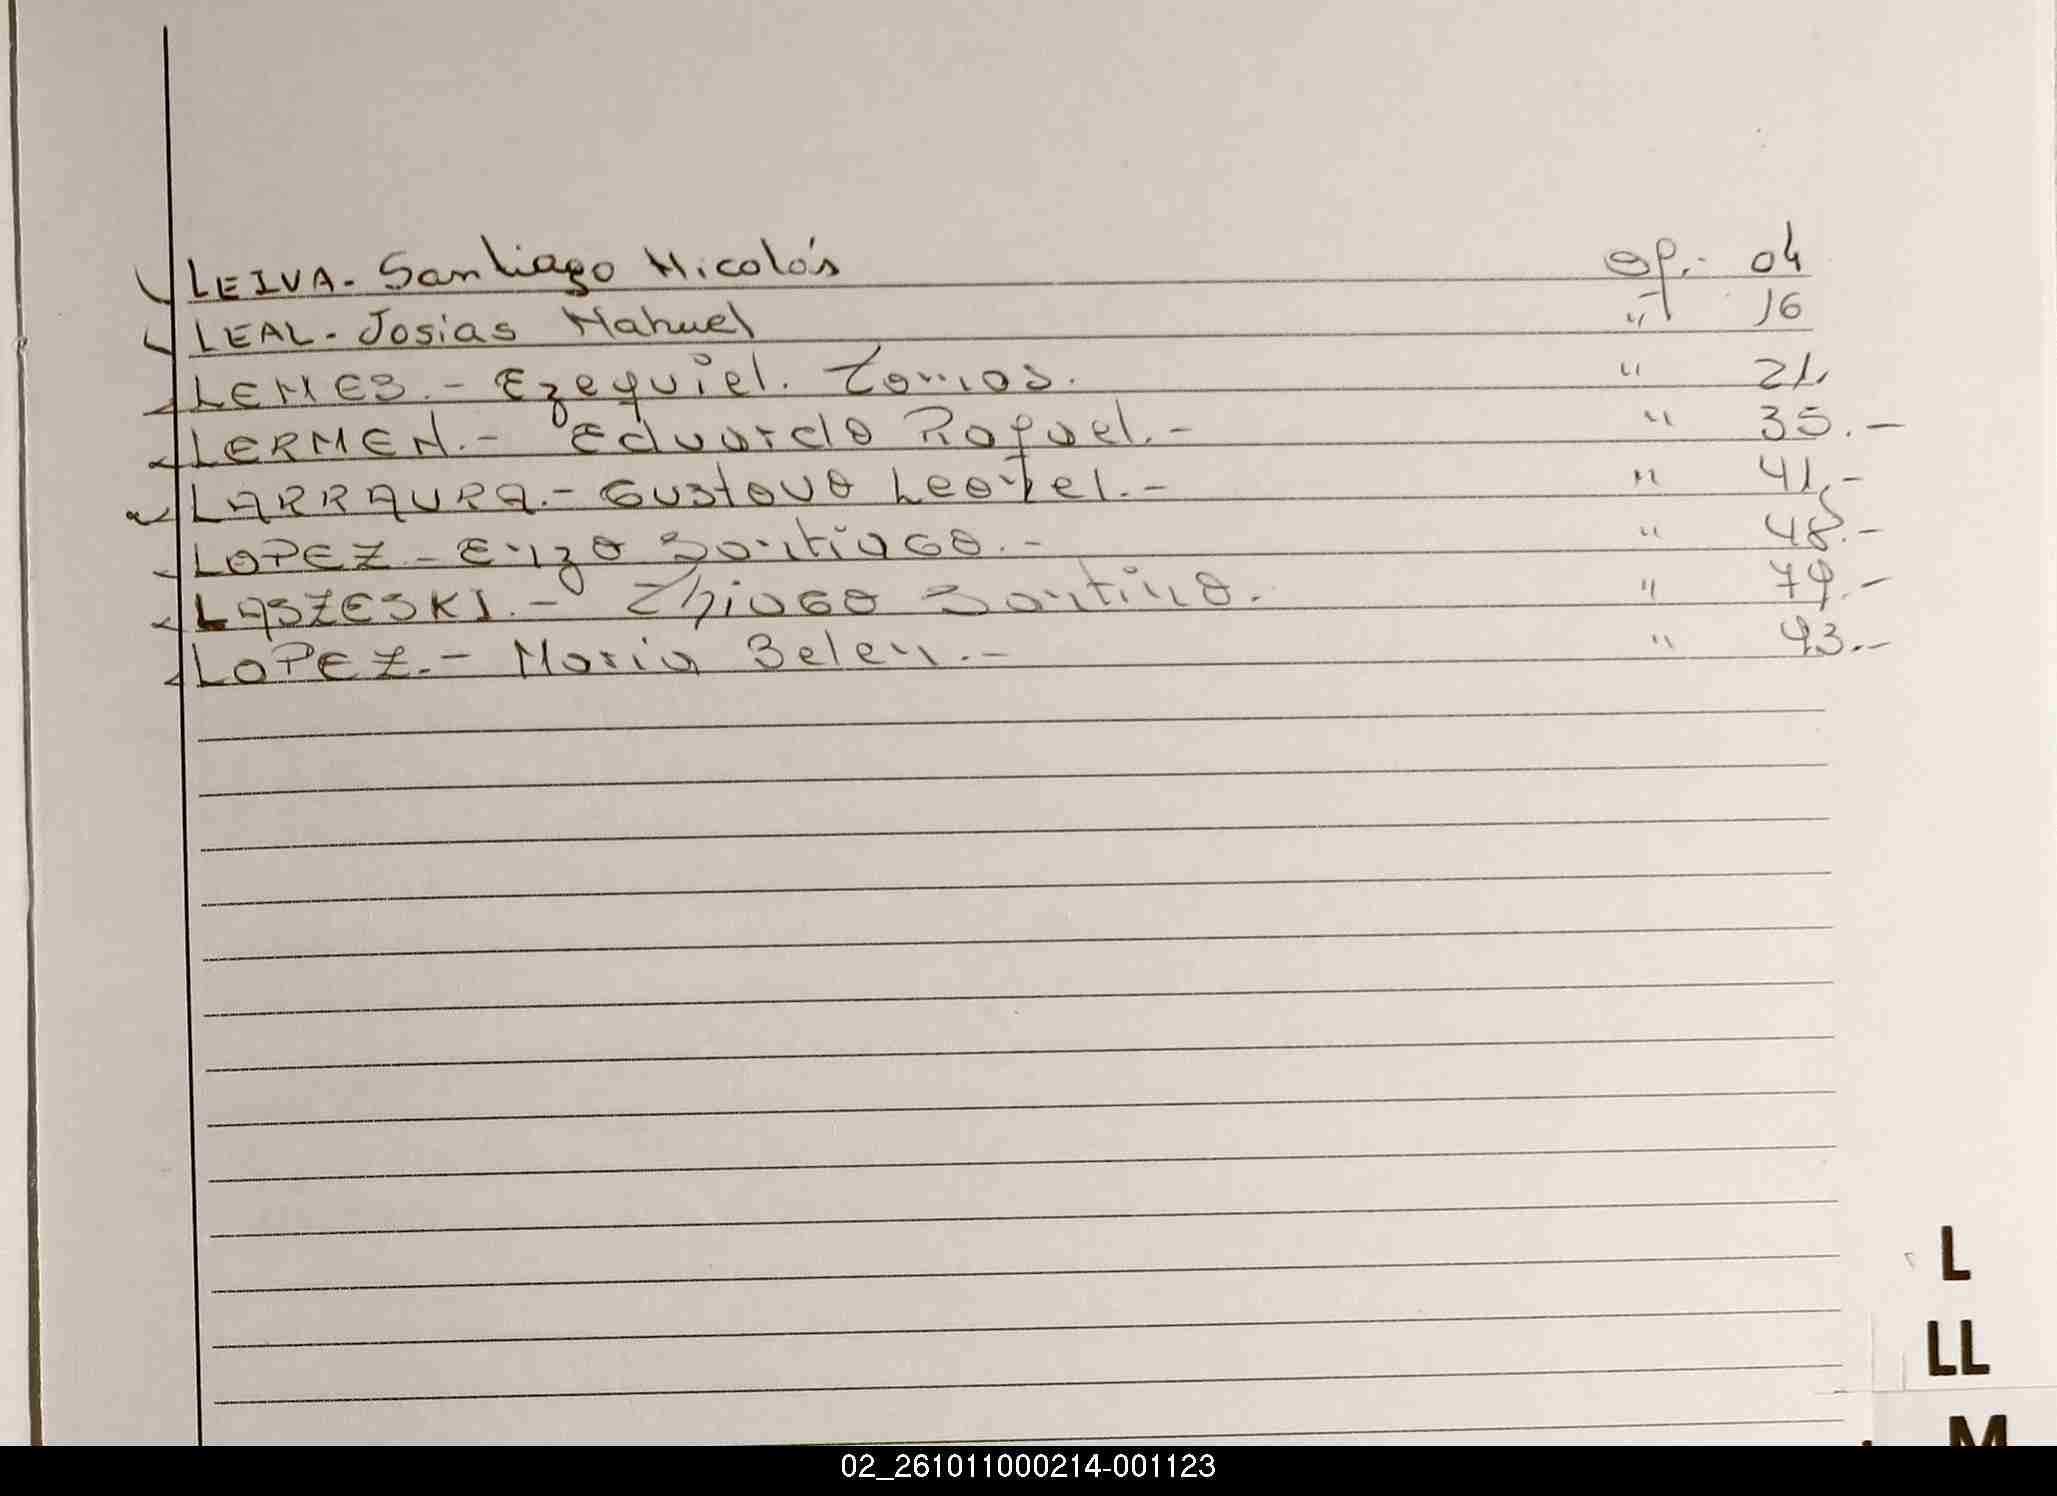 LEIVA. Santiago Nicolás ap.- 04
LEAL - Josias Nahuel " 16
LEMES. - Ezequiel. Tomas. " 21
LERMEN. - Eduardo Rafael. - " 35. -
LARRAURA. - Gustavo Leonel. - " 41. -
LOPEZ - Enzo Santiago. - " 48. -
LASZESKI. - Thiago Santino. " 79. -
LOPEZ. - Maria Belen. - " 93. -
L
LL
M
02_261011000214-001123